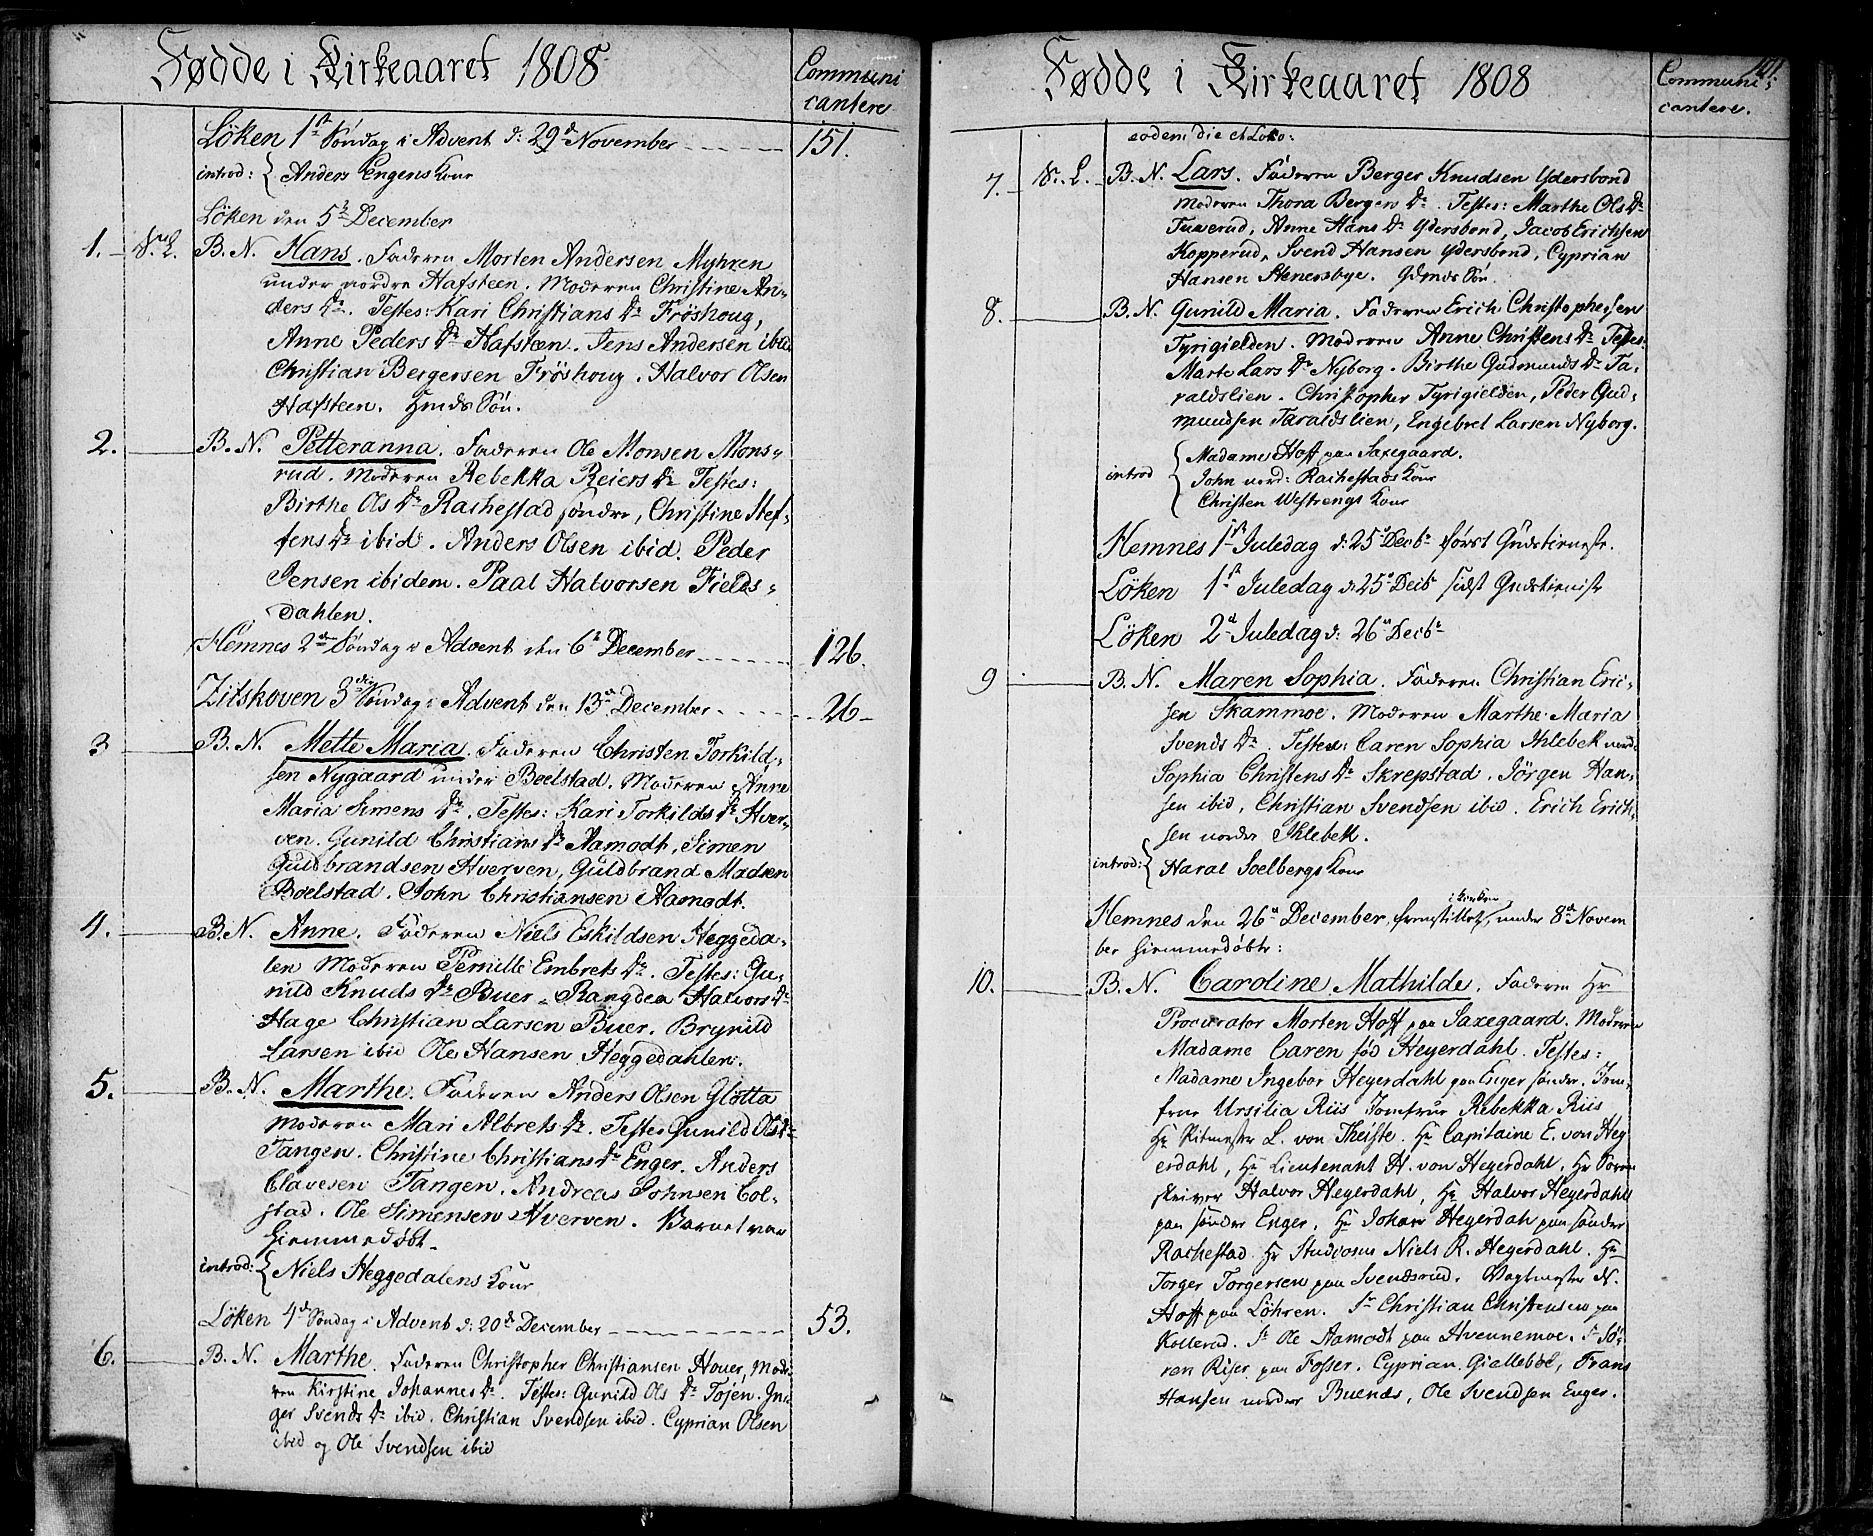 Fødde i Kirkeaaret 1808
Communi
cantere
Löken 1ste Søndag i Advent d: 29de November 151.
introd: { Anders Engens Kone
Löken den 5te December
1. U. L. B. N. Hans. Faderen Morten Andersen Myhren
under nordre Hafsteen. Moderen Christine An-
ders Dr. Testes: Kari Christians Dr Fröshoug,
Anne Peders Dr Hafsteen. Jens Andersen ibid
Christian Bergersen Fröshoug. Halvor Olsen
Hafsteen. Sön.
2. B. N. Petteranna. Faderen Ole Monsen Mons-
rud. Moderen Rebekka Reiers Dr Testes:
Birthe Ols Dr Rachestad söndre, Christine Stef-
fens Dr ibid. Anders Olsen ibid. Peder
Jensen ibidem. Paal Halvorsen Fields-
dahlen.
Hemnes 2den Søndag i Advent den 6te December 126.
Zitskoven 3die Søndag i Advent den 13de December 26
3 B. N. Mette Maria. Faderen Christen Torkild-
sen Nygaard under Boelstad. Moderen Anne
Maria Simens Dr. Testes: Kari Torkilds Dr Hver-
ven. Gunild Christians Dr Aamodt, Simen
Guldbrandsen Hverven, Guldbrand Madsen
Boelstad. John Christiansen Aamodt.
4. B. N. Anne. Faderen Niels Eskildsen Heggeda-
len Moderen Pernille Embrets Dr. Testes: Gu-
nild Knuds Dr Buer. Rangdea Halvors Dr
Hage Christian Larsen Buer. Brynild
Larsen ibid Ole Hansen Heggedahlen.
5. B. N. Marthe. Faderen Anders Olsen Glötta
Moderen Mari Albrets Dr. Testes Gunild Ols Dr
Tangen. Christine Christians Dr Enger. Anders
Clavesen Tangen. Andreas Johnsen Col-
stad. Ole Simensen Hverven. Barnet var
hiemmedöbt.
introd: { Niels Heggedalens Kone
Löken 4de Søndag i Advent d: 20de December 53.
6. B. N. Marthe. Faderen Christopher Christiansen Houer, Mode-
ren Kirstine Johannes Dr. Testes: Gunild Ols Dr Tojen. In-
ger Svends Dr ibid. Christian Svendsen ibid. Cyprian Olsen
ibid og Ole Svendsen ibid
Fødde i Kirkeaaret 1808
Communi-
cantere.
101.
eodem die et Loko:
7. U. L. B. N. Lars. Faderen Berger Knudsen Ydersbond
Moderen Thora Bergers Dr. Testes: Marthe Ols Dr
Tuverud, Anne Hans Dr Ydersbond, Jacob Erichsen
Kopperud, Svend Hansen Ydersbond, Cyprian
Hansen Stenersbye. Sön
8. B. N. Gunild Maria. Faderen Erich Christophersen
Tyrigielden. Moderen Anne Christens Dr Testes:
Marte Lars Dr Nyborg. Birthe Gudmunds Dr Ta-
raldslien. Christopher Tyrigielden, Peder Gud-
mundsen Taraldslien, Engebret Larsen Nyborg.
introd { Madame Hoff paa Saxegaard.
John nord: Rachestads Kone
Christen Westrengs Kone
Hemnes 1ste Juledag d: 25de Decbr først Gudstieneste.
Löken 1ste Juledag d: 25de Decbr sidst Gudstieniste
Löken 2den Juledag d: 26de Decbr
9 B. N. Maren Sophia. Faderen Christian Eric-
sen Skammoe. Moderen Marthe Maria
Svends Dr. Testes: Caren Sophia Ihlebek nord:
Sophia Christens Dr Skrepstad. Jörgen Han-
sen ibid, Christian Svendsen ibid. Erich Erich-
sen nordre Ihlebek.
introd: { Haral Soelbergs Kone
Hemnes den 26de December, fremstillet i kirken, under 8de Novem
ber hiemmedöbte:
10. B. N. Caroline Mathilde. Faderen Hr
Procurator Morten Hoff paa Saxegaard. Moderen
Madame Caren föd Heyerdahl. Testes:
Madame Ingebor Heyerdahl paa Enger sönder. Jom-
frue Ursilia Riis Jomfrue Rebekka Riis
Hr Ritmester L. von Theiste. Hr Capitaine E. von Hey
erdahl, Hr Lieutenant H. von Heyerdahl. Hr Soren-
skriver Halvor Heyerdahl, Hr Halvor Heyerdahl
paa sönder Enger. Hr Johan Heyerdah paa sönder
Rachestad Hr Studiosus Niels R. Heyerdahl. Hr
Torger Torgersen paa Svendsrud. Vagtmester N.
Hoff paa Löhren. Sr Christian Christensen paa
Kollerud. Sr Ole Aamodt paa Hvennemoe. Sr Sö-
ren Riser paa Fosser. Cyprian Gielleböe, Frans
Hansen nordre Buenæs, Ole Svendsen Enger.